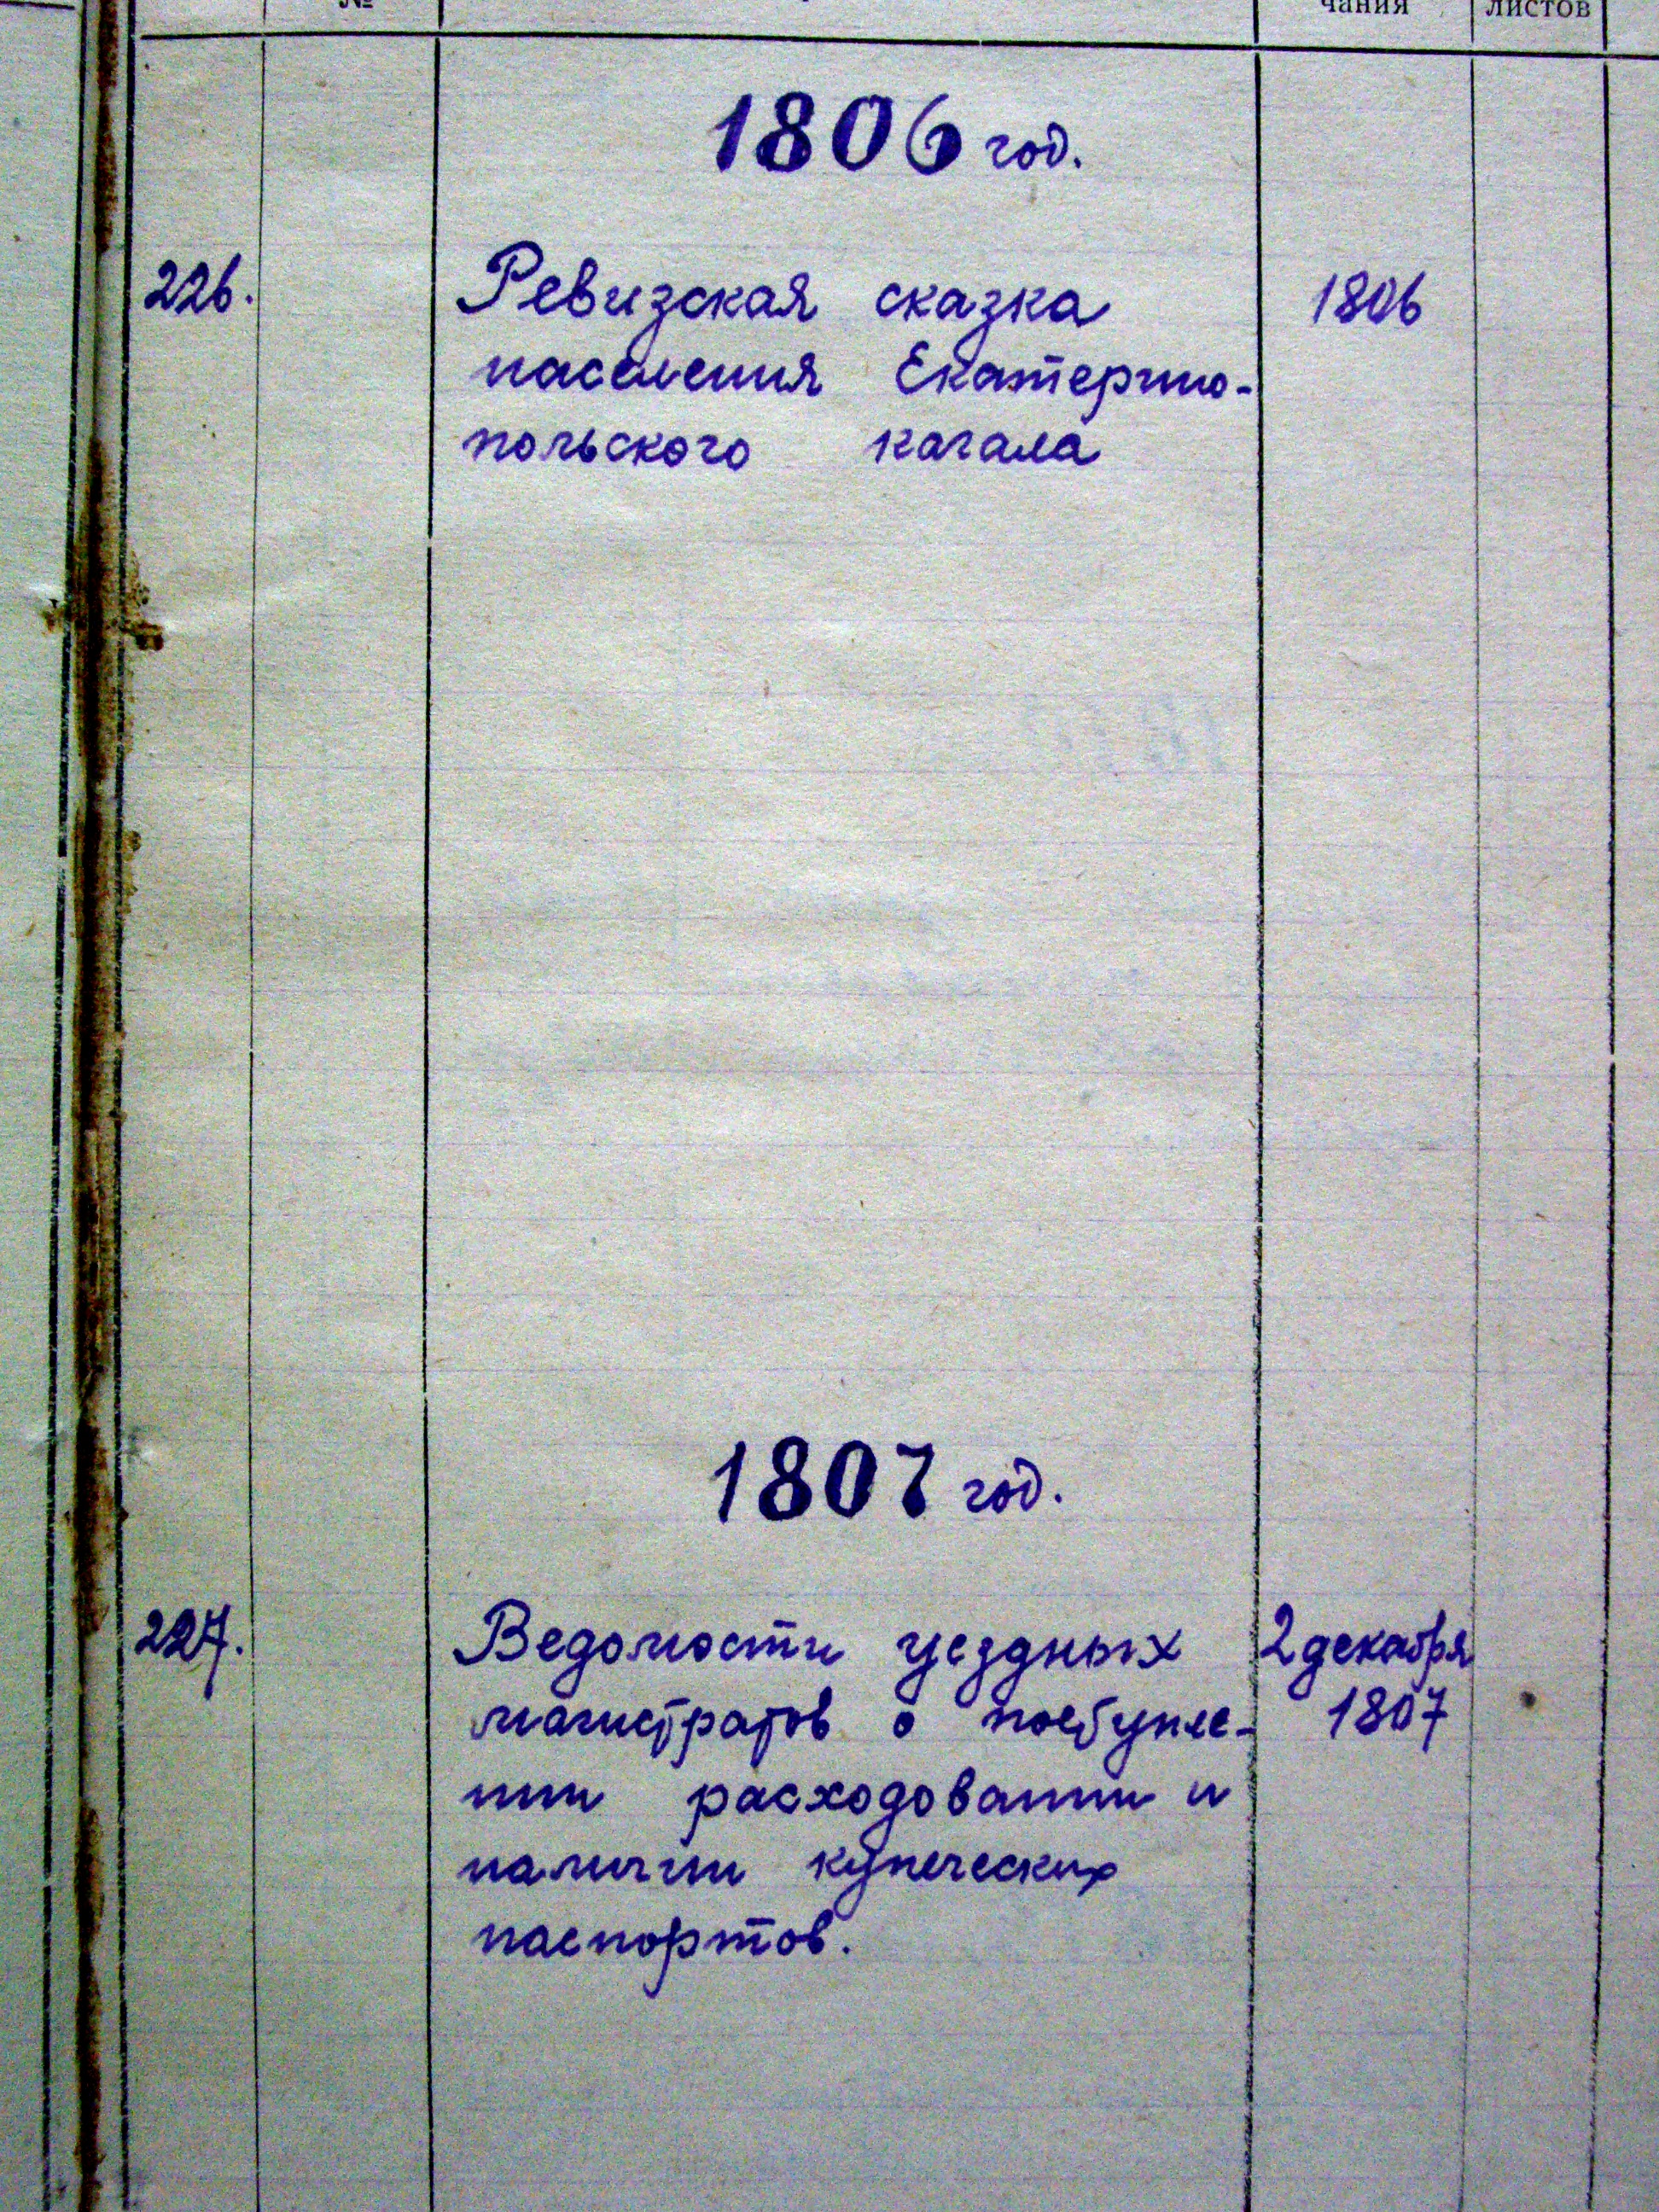 № чания листов
1806 год.
226. Ревизская сказка 1806
населения Екатерино-
польского кагала
1807 год.
227. Ведомости уездных 2 декабря
магистратов о поступле- 1807
нии расходовании и
наличии купеческих
паспортов.